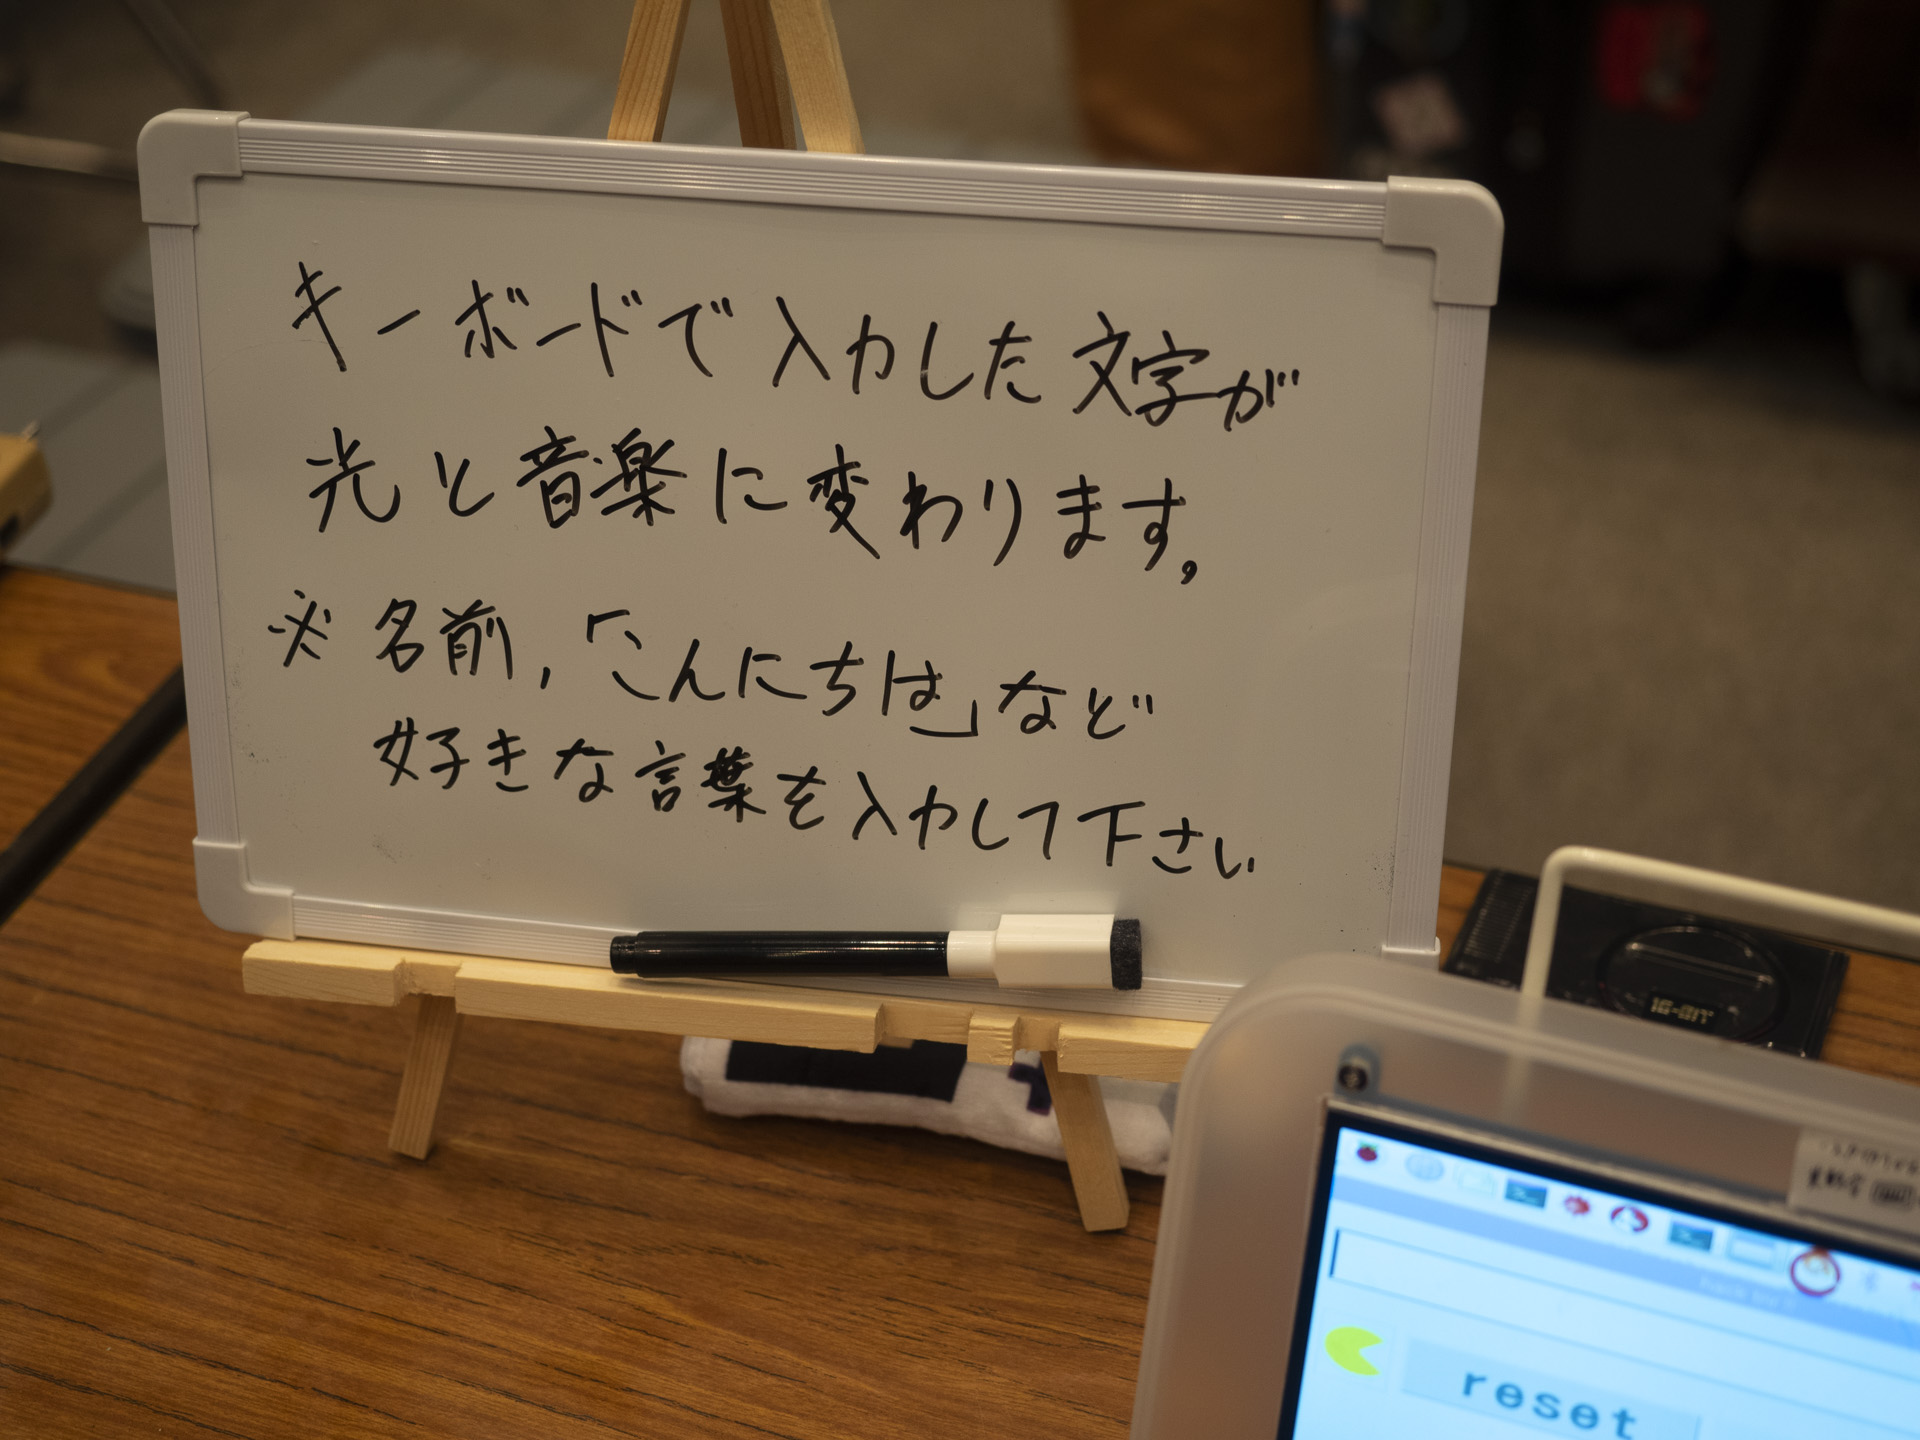 キーボードで入力した文字が
光と音楽に変わります。
※ 名前,「こんにちは」など
好きな言葉を入力して下さい
16-BIT
reset